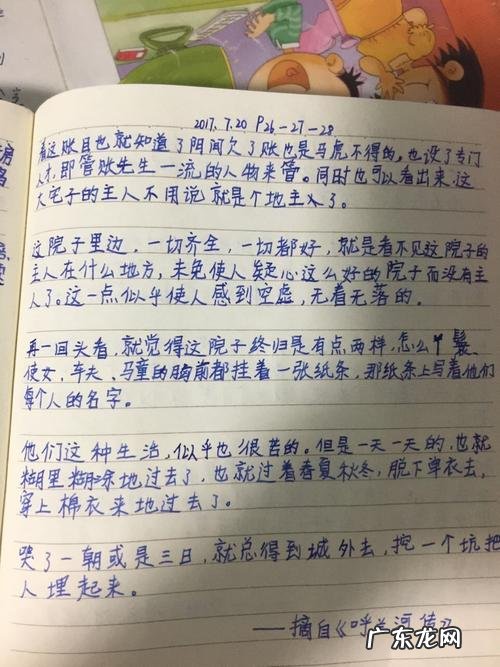 2017.7.20 P26-27-28
看这账目也就知道了阴间欠了账也是马虎不得的,也设了专门
人才,即管账先生一流的人物来管。同时也可以看出来,这
大宅子的主人不用说就是个地主了。
这院子里边,一切齐全,一切都好,就是看不见这院子的
主人在什么地方,未免使人疑心这么好的院子而没有主
人了。这一点似乎使人感到空虚,无着无落的。
再一回头看,就觉得这院子终归是有点两样,怎么丫鬟、
使女、车夫、马童的胸前都挂着一张纸条,那纸条上写着他们
每个人的名字。
他们这种生活,似乎也很苦的。但是一天一天的,也就
糊里糊涂地过去了,也就过着春夏秋冬,脱下单衣去,
穿上棉衣来地过去了。
哭了一朝或是三日,就总得到城外去,挖一个坑把
人埋起来。
——摘自《呼兰河传》
广东龙网